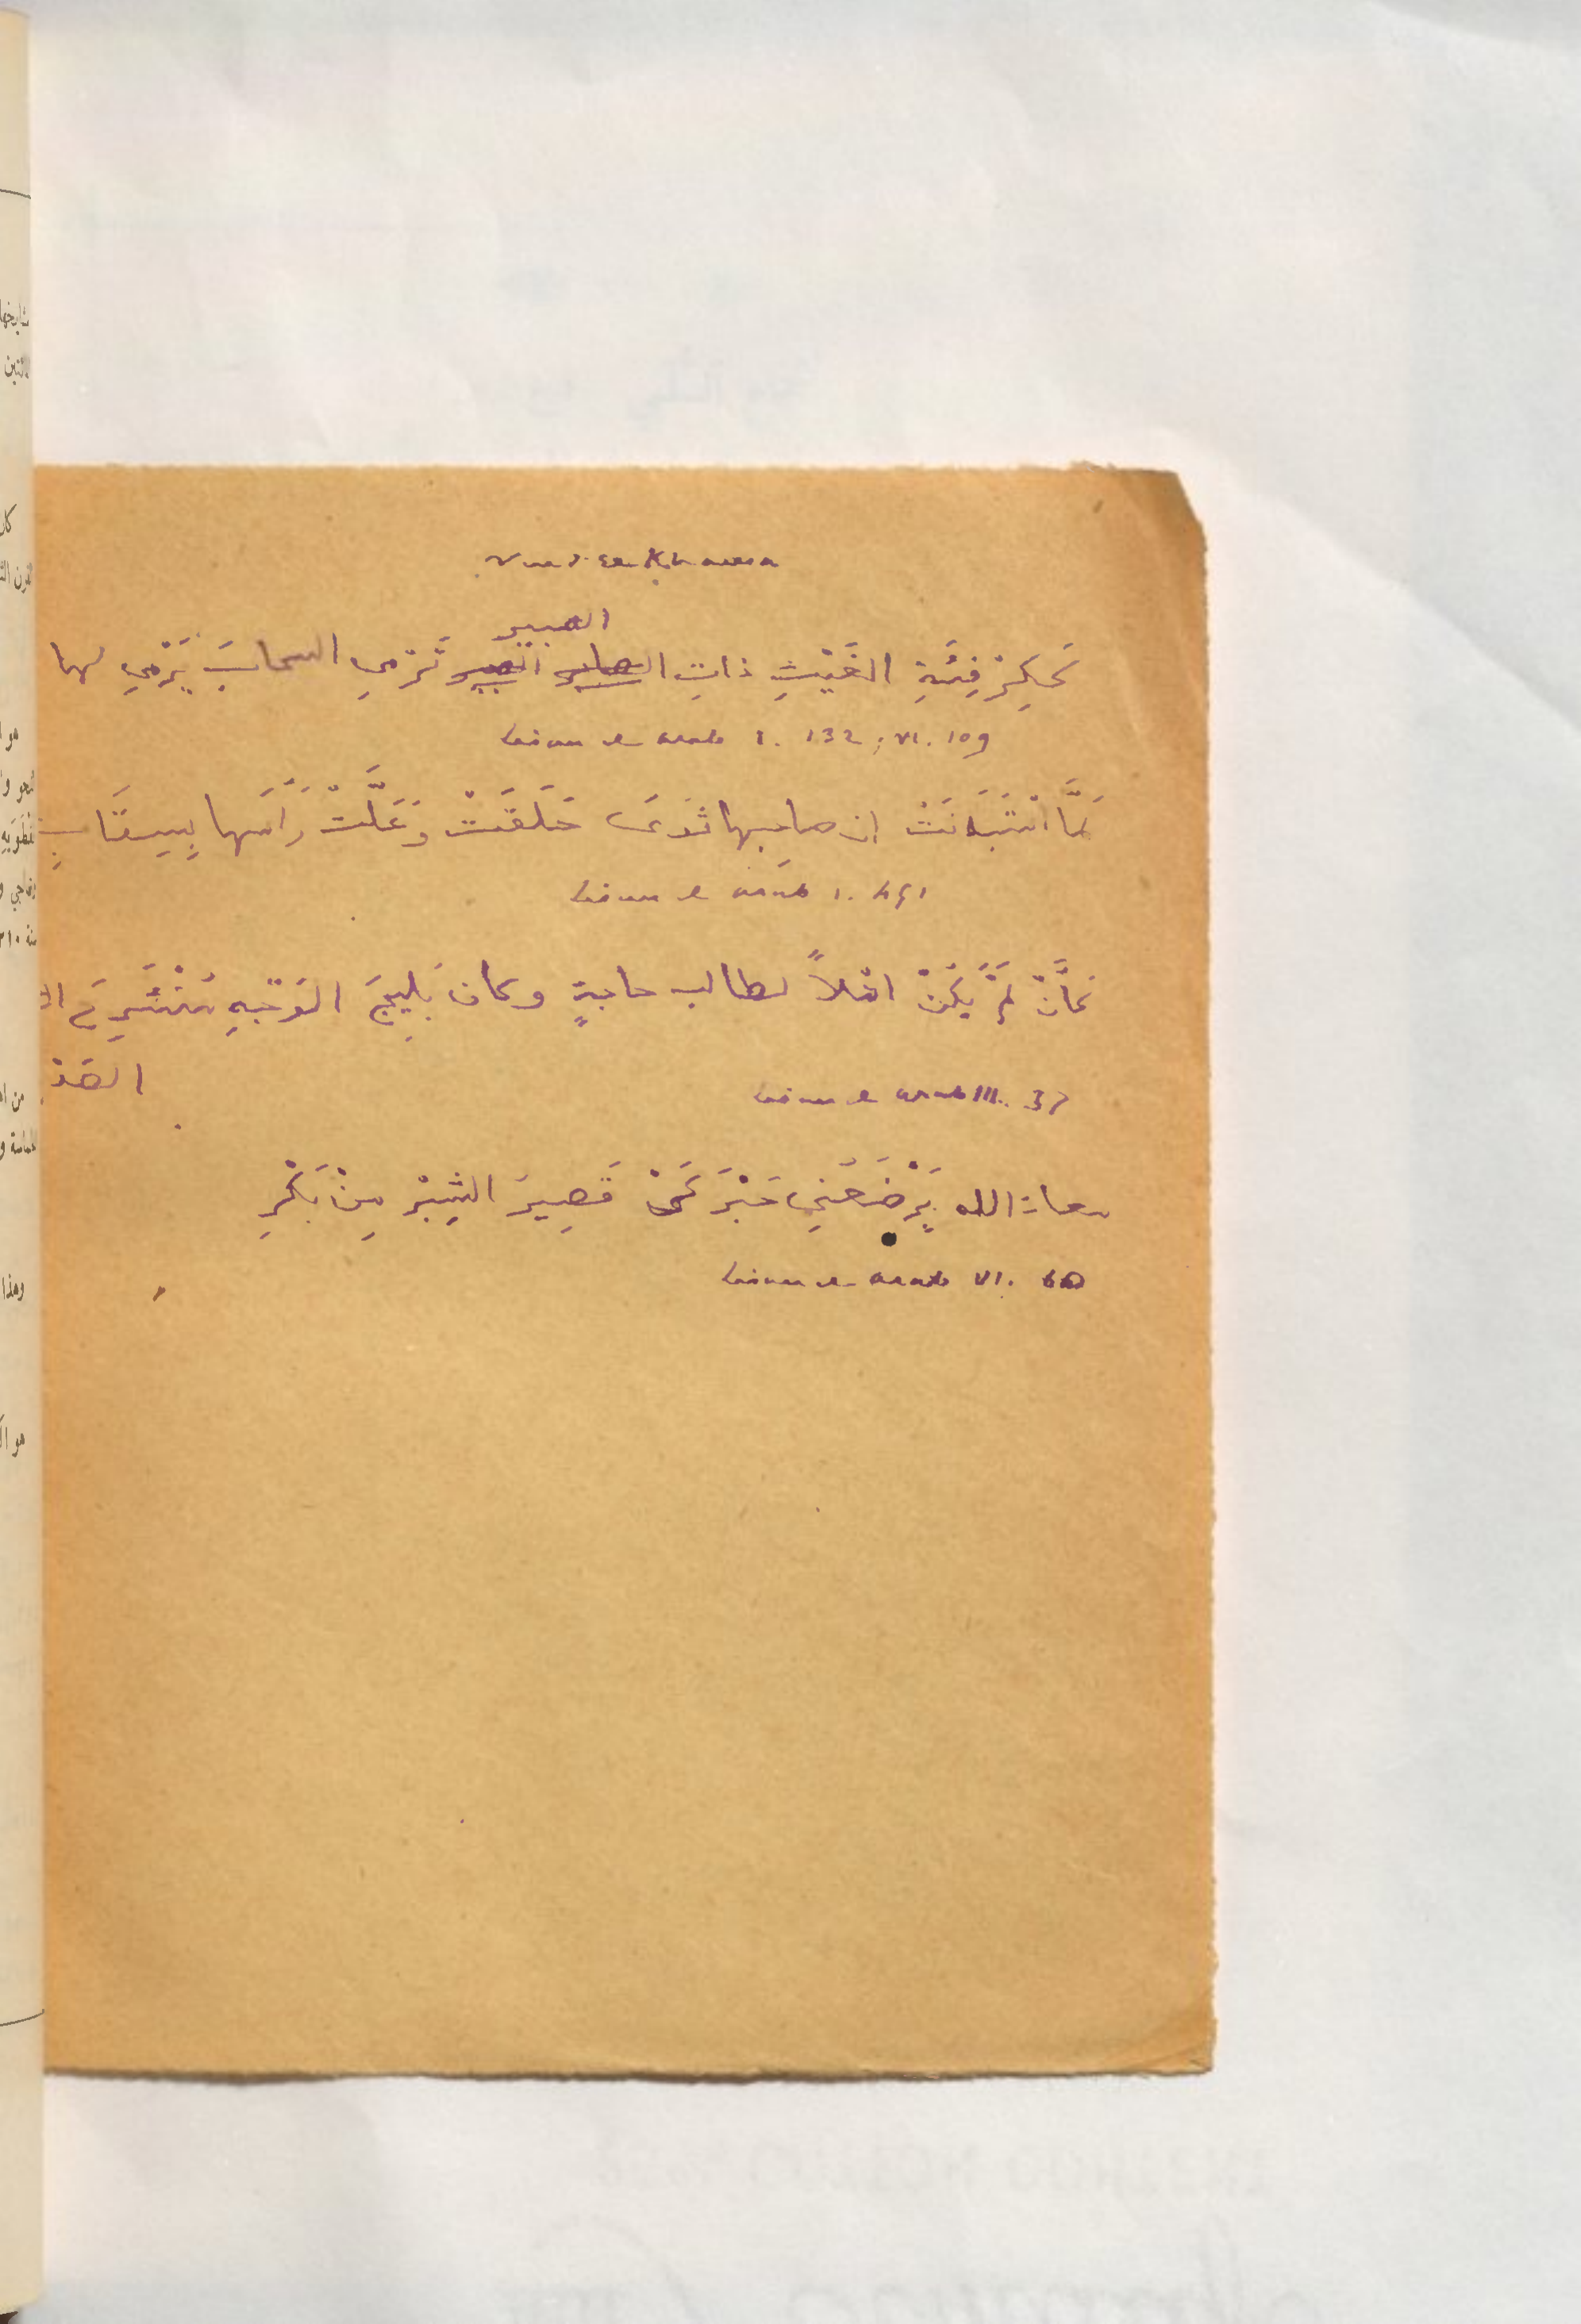 Vers de Khansa
الصبير
كَكِرْفِئَةِ الغَيْثِ ذاتِ تَرْمي السحابَ يَرْمي لها
Lisan el arab I. 132 ; VI. 109
لمَّا اسْتَبَانَتْ ان صاحِبها ثَوَى حَلَقَتْ وَعَلَّتْ رَأسَها بِسِقَابِ
Lisan el arab I. 451
كأنْ لَمْ يَكُنْ اهْلاً لطالب حاجةٍ وكان بَلِيجَ الوَجْهِ مُنْشَرِحَ
الصَدْ
Lisan el arab III. 37
معاذ الله يَرْضَعُنِي حَبَرْكَى قَصِيرَ الشِبْرِ مِنْ بَكْرِ
Lisan el arab VI. 60